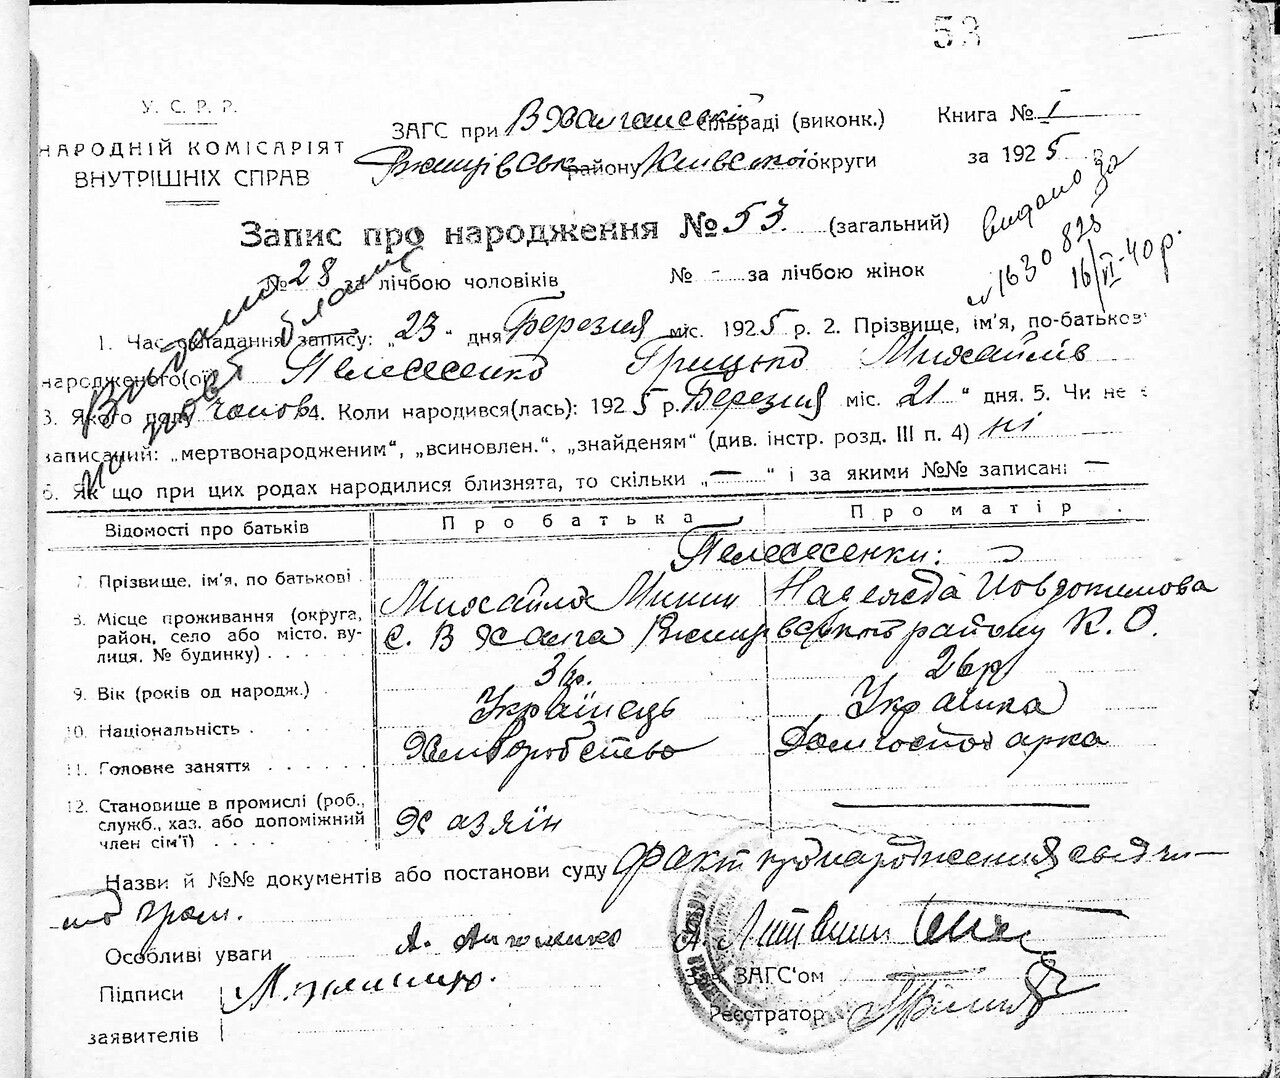 53
У. С. Р. Р.
НАРОДНІЙ КОМІСАРІЯТ
ВНУТРІШНІХ СПРАВ
ЗАГС при сільраді (виконк.)
району Київської округи
Книга № I
за 1925
видано за
№ 1630828
16/VI-40 р.
Запис про народження № 53. (загальний)
№ 28 за лічбою чоловіків № - за лічбою жінок
1. Час складання запису: „23" дня Березня міс. 1925 р. 2. Прізвище, ім'я, по-батьков
народженого(ої) Грицько Михайлів
3. Якого полу чолов 4. Коли народився(лась): 1925 р. Березня міс. 21 " дня. 5. Чи не є
записаний: „мертвонародженим", „всиновлен.", „знайденям" (див. інстр. розд. III п. 4) ні
6. Як що при цих родах народилися близнята, то скільки „—" і за якими №№ записані —
Відомості про батьків Про батька Про матір
7. Прізвище, ім'я, по батькові
Михайло Надежда Йовдокимова
8. Місце проживання (округа,
район, село або місто, ву-
лиця, № будинку)
району К. О.
9. Вік (років од народж.) 26 р
10. Національність Українець Українка
11. Головне заняття Хліборобство Домгосподарка
12. Становище в промислі (роб.,
служб., хаз. або допоміжний
член сім'ї) Хазяїн
Назви й №№ документів або постанови суду Факт народження
Особливі уваги
Підписи
заявителів
Зав. ЗАГС'ом
Реєстратор